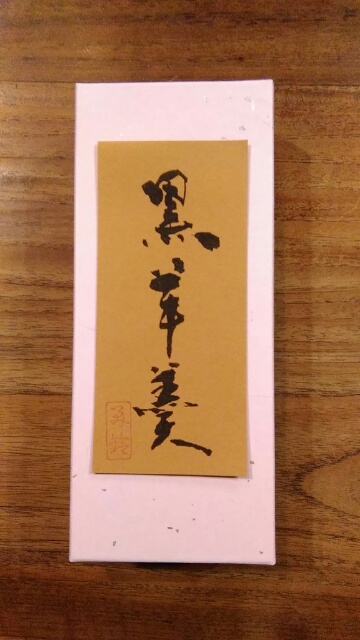 黒羊羹